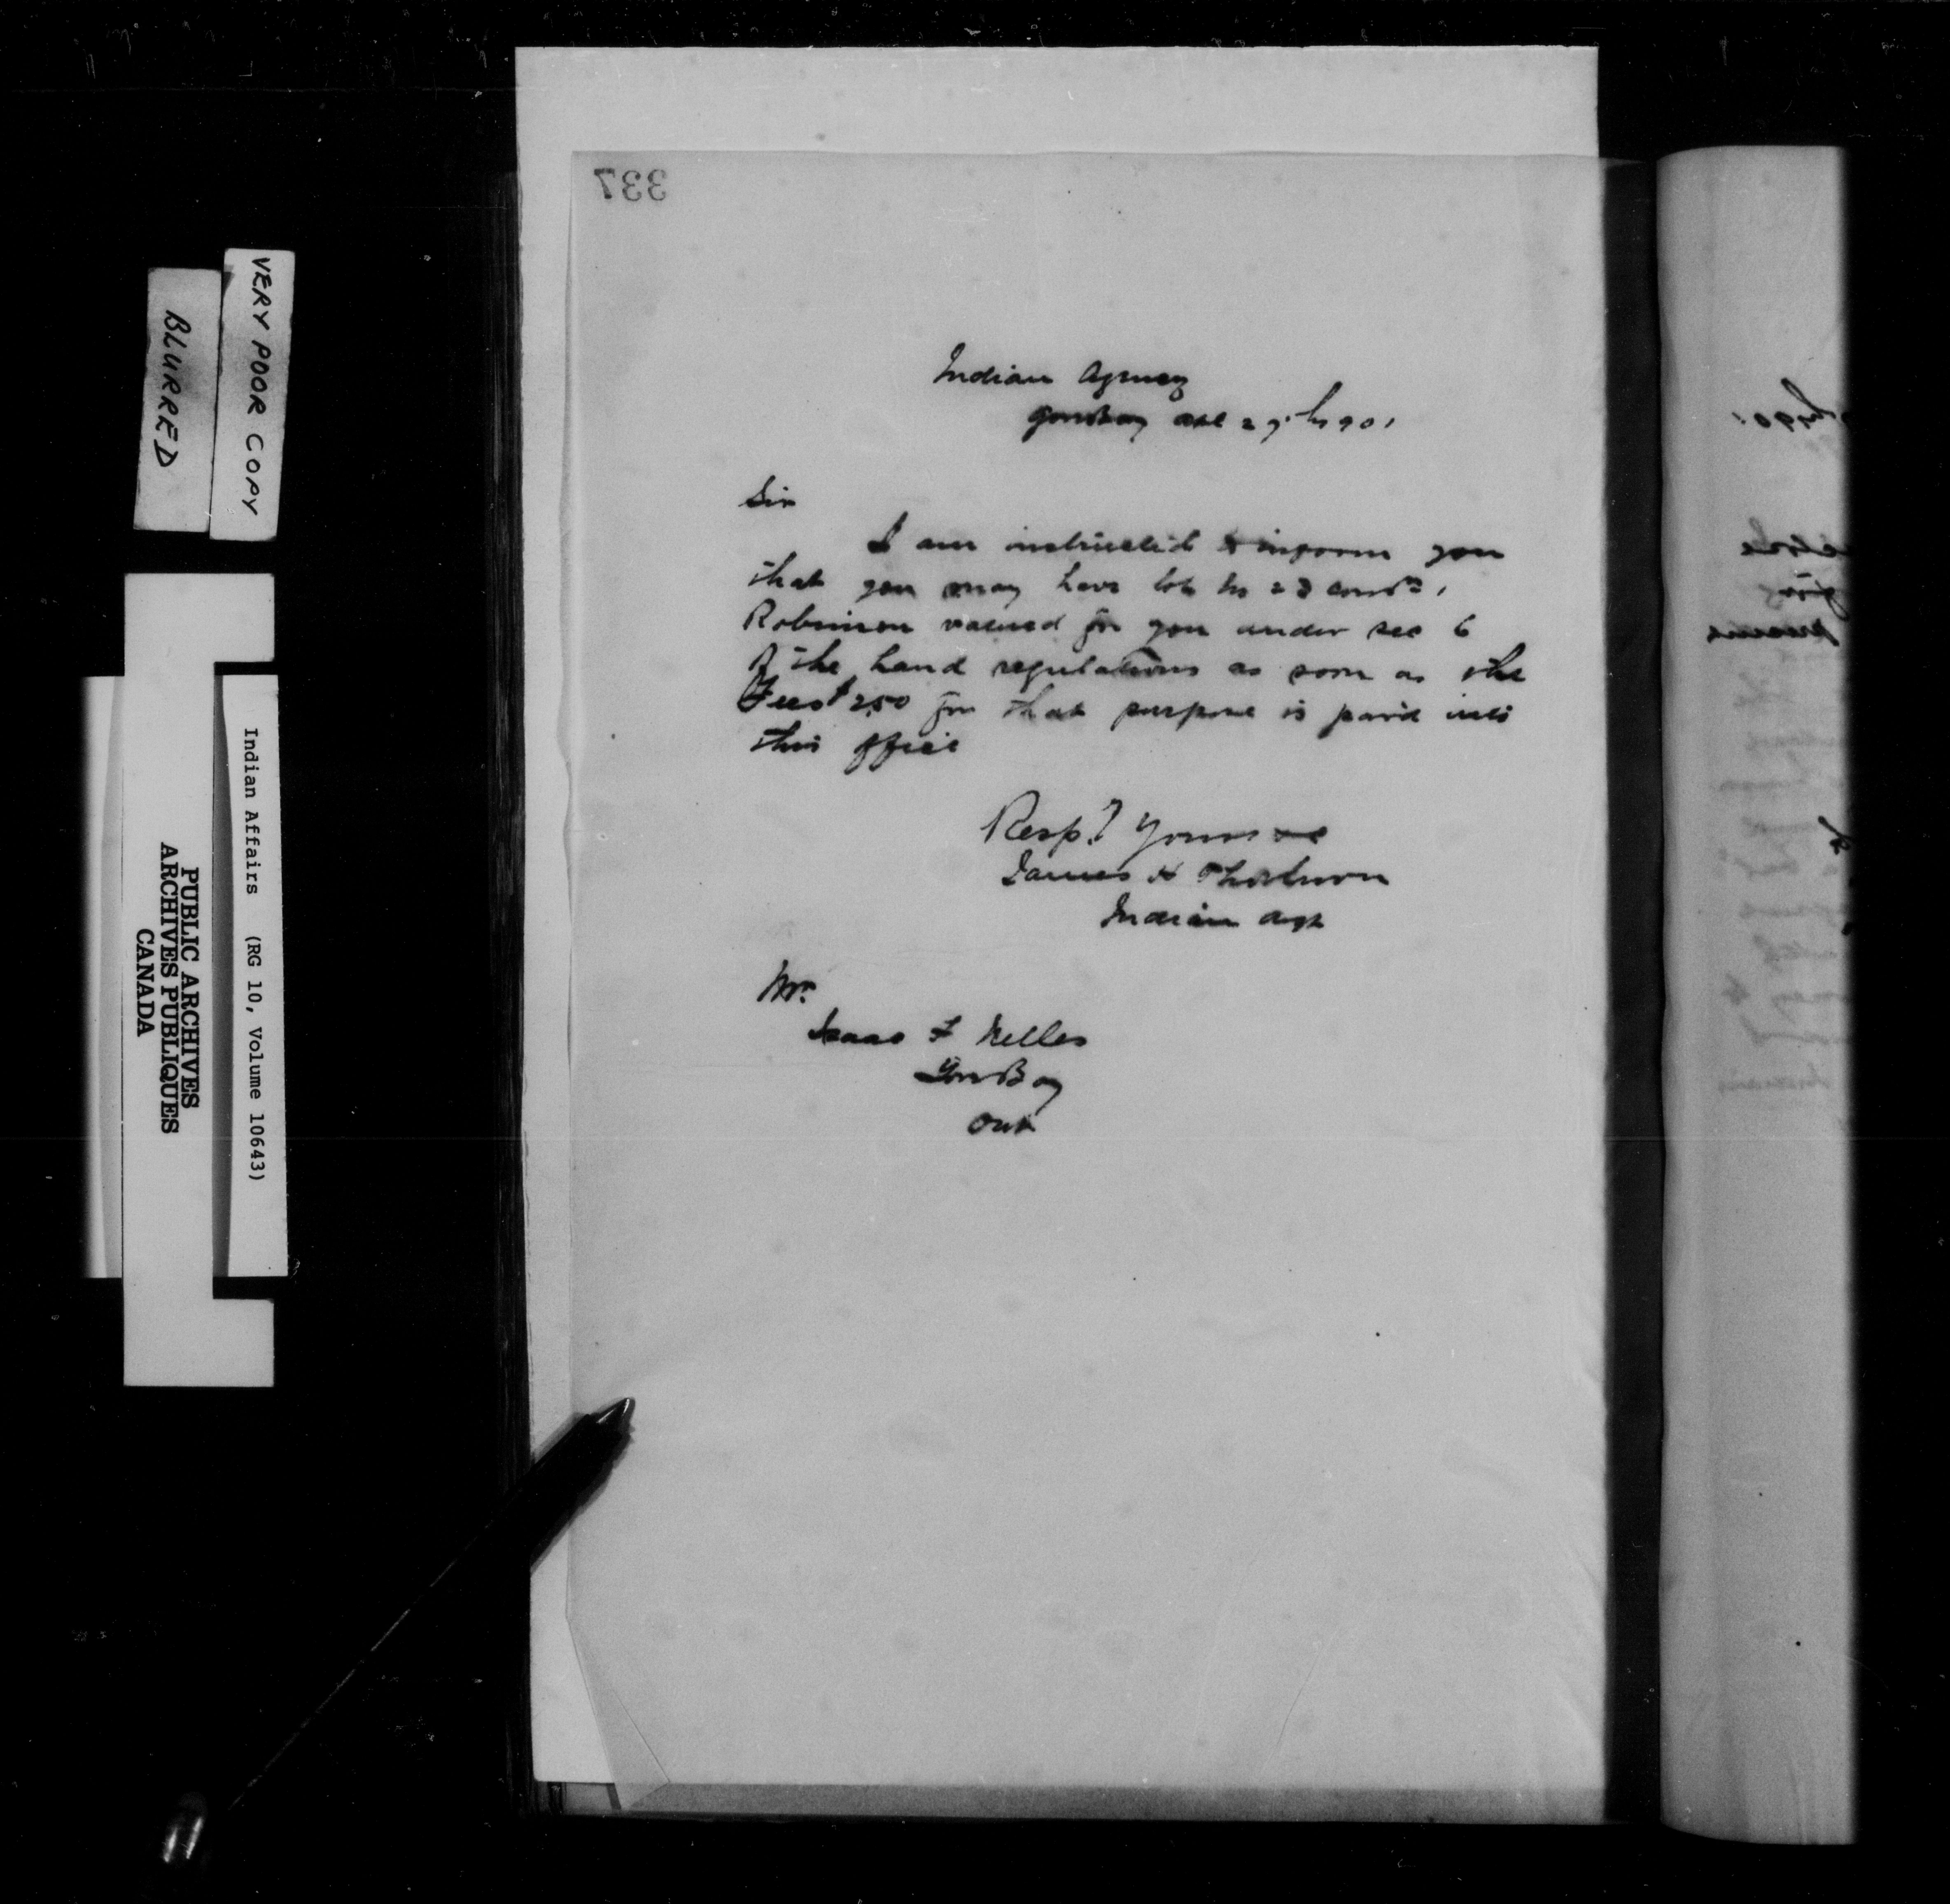 337
Indian Agency
Gore Bay 27th 1901
Sir
I am instructed to inform you
that you may have lot No 23 con
Robinson valued for you under sec 6
of the Land regulations as soon as the
Fees $2.50 for that purpose is paid into
this office
Resp. Yours
James H Thorburn
Indian Agt
Mr.
Isaac F Nelles
Gore Bay
Ont
VERY POOR COPY
BLURRED
Indian Affairs (RG 10, Volume 10643)
PUBLIC ARCHIVES
ARCHIVES PUBLIQUES
CANADA